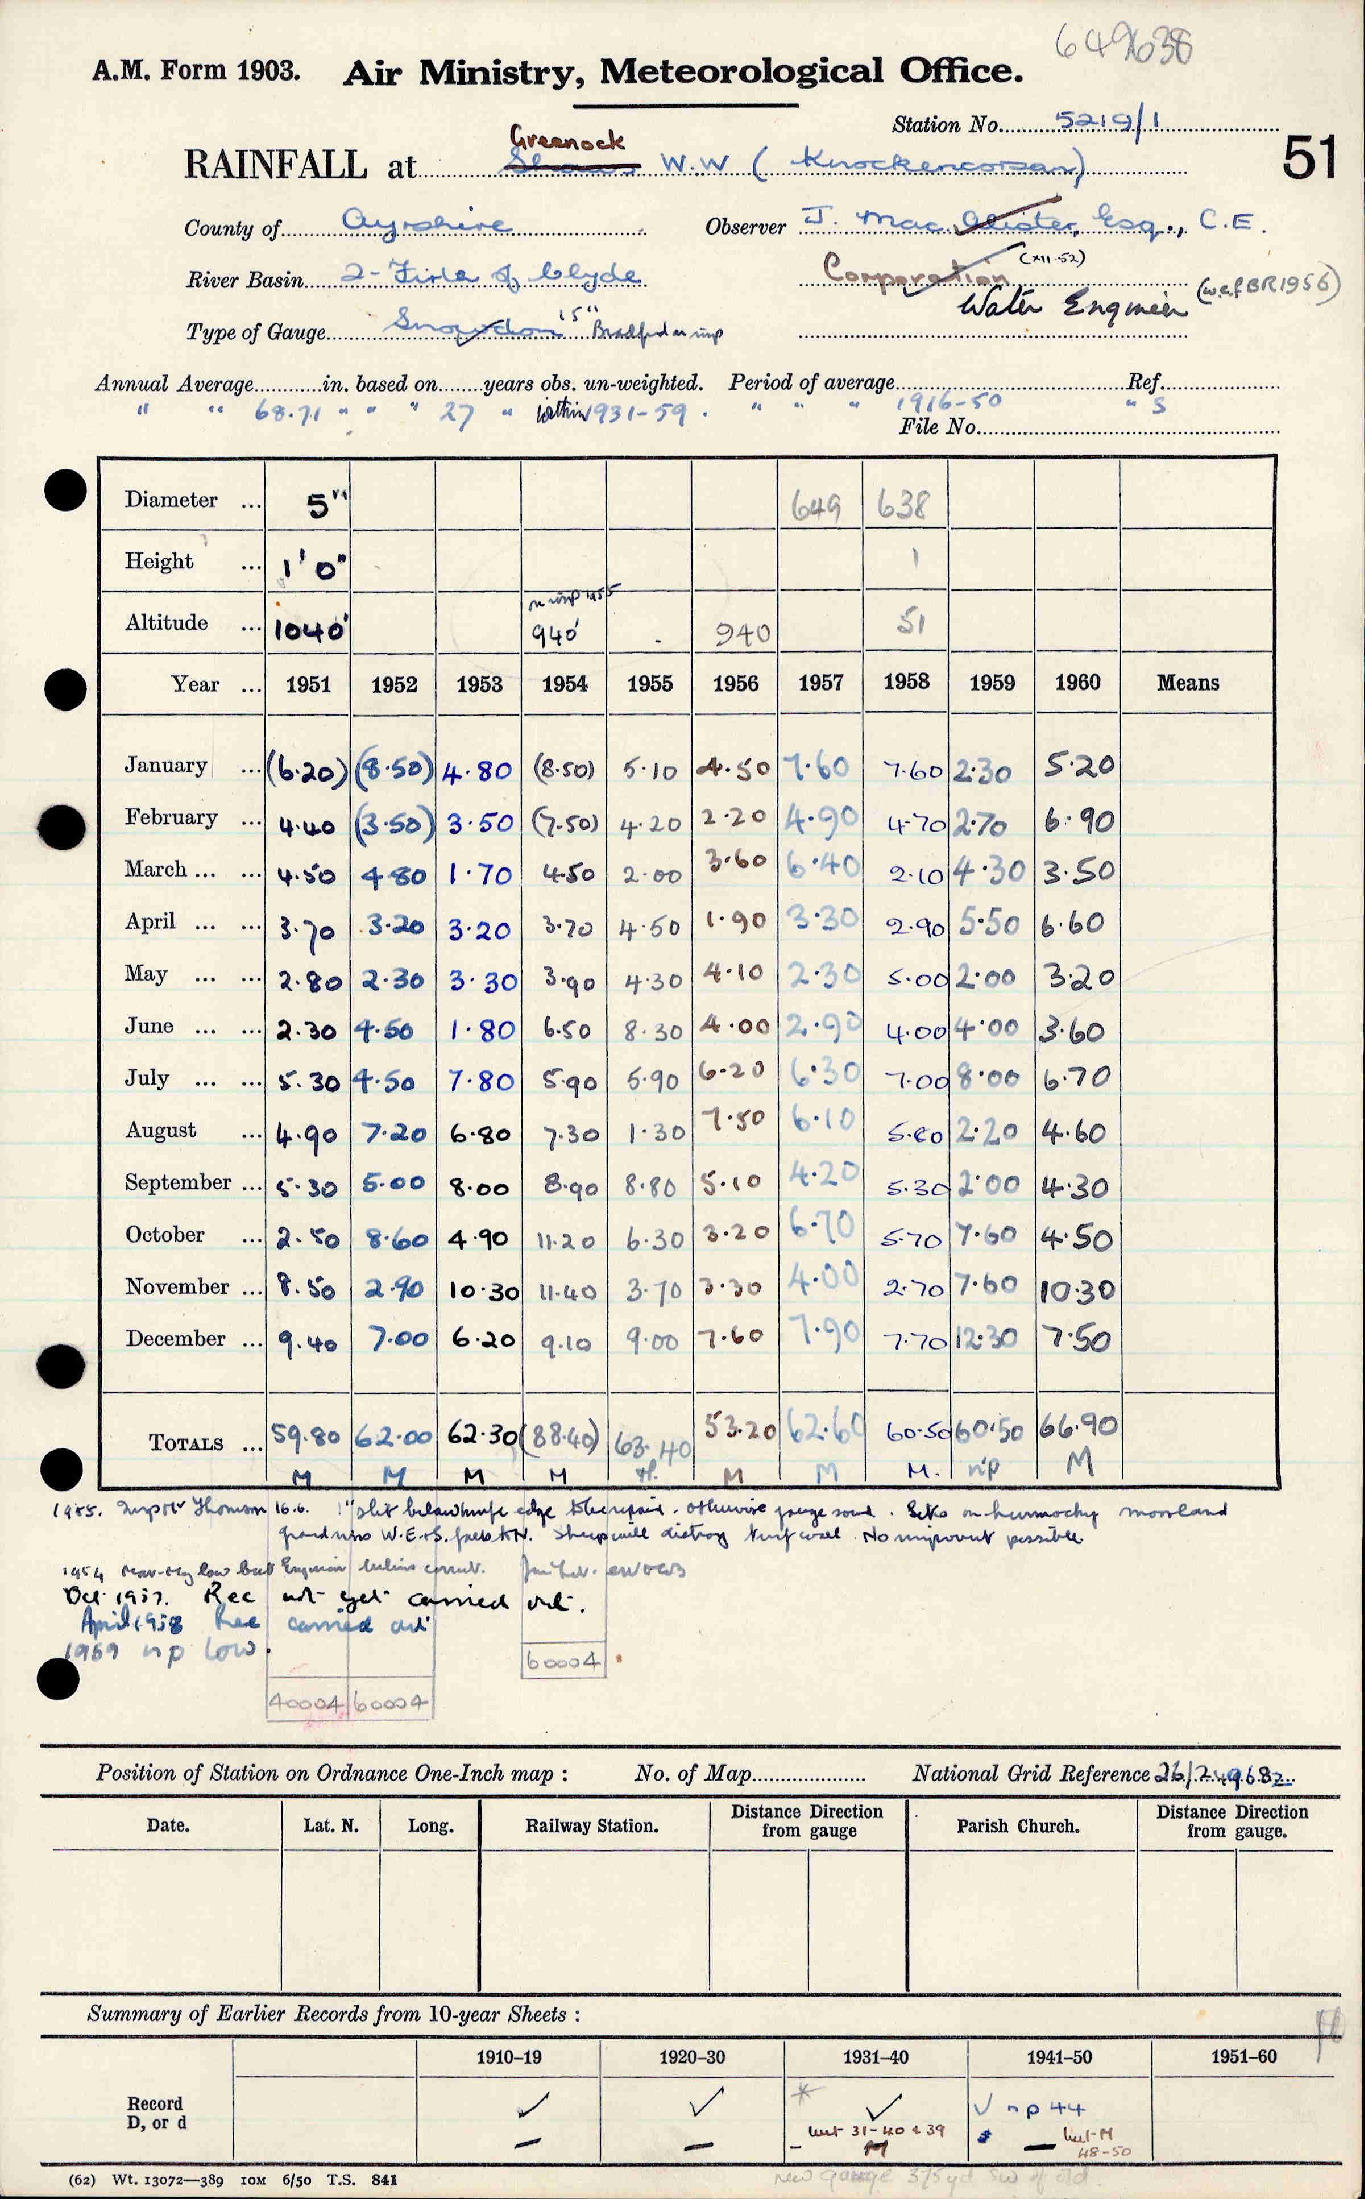 649638
A.M. Form 1903. Air Ministry, Meteorological Office.
Station No. 5219/1
Greenock
RAINFALL at Shaws W.W (Knockencorsan) 51
County of Ayrshire Observer J. MacAlister, Esq., C.E.
Corporation (XII.52)
River Basin 2-Firth of Clyde
Water Engineer (w.e.f BR1956)
Type of Gauge Snowdon 5" Bradford
Annual Average in. based on years obs. un-weighted. Period of average Ref.
" " 68.71 " " " 27 " within 1931-59. " " " 1916-50 " S
File No.
Diameter ... 5" 649 638
Height ... 1' 0" 1
Altitude ... 1040' 940' 940 51
Year ... 1951 1952 1953 1954 1955 1956 1957 1958 1959 1960 Means
January ... (6.20) (8.50) 4.80 (8.50) 5.10 4.50 7.60 7.60 2.30 5.20
February ... 4.40 (3.50) 3.50 (7.50) 4.20 2.20 4.90 4.70 2.70 6.90
March ... ... 4.50 4.80 1.70 4.50 2.00 3.60 6.40 2.10 4.30 3.50
April ... ... 3.70 3.20 3.20 3.70 4.50 1.90 3.30 2.90 5.50 6.60
May ... ... 2.80 2.30 3.30 3.90 4.30 4.10 2.30 5.00 2.00 3.20
June ... ... 2.30 4.50 1.80 6.50 8.30 4.00 2.90 4.00 4.00 3.60
July ... ... 5.30 4.50 7.80 5.90 5.90 6.20 6.30 7.00 8.00 6.70
August ... 4.90 7.20 6.80 7.30 1.30 7.50 6.10 5.80 2.20 4.60
September ... 5.30 5.00 8.00 8.90 8.80 5.10 4.20 5.30 2.00 4.30
October ... 2.50 8.60 4.90 11.20 6.30 3.20 6.70 5.70 7.60 4.50
November ... 8.50 2.90 10.30 11.40 3.70 3.30 4.00 2.70 7.60 10.30
December ... 9.40 7.00 6.20 9.10 9.00 7.60 7.90 7.70 12.30 7.50
TOTALS ... 59.80 62.00 62.30 (88.40) 63.40 53.20 62.60 60.50 60.50 66.90
M M M M M M M M. np M
1955. Thomson 16.6. 1" slit below knife edge otherwise gauge sound. moorland
W.E.+S. Sheep will destroy turf wall. No improvt possible
1954 low but Engineer
Oct 1957. Rec not yet carried out.
April 1958 Rec carried out
1959 np low.
60004
40004 60004
Position of Station on Ordnance One-Inch map : No. of Map National Grid Reference 26/249682
Date. Lat. N. Long. Railway Station. Distance Direction from gauge Parish Church. Distance Direction from gauge.
Summary of Earlier Records from 10-year Sheets :
1910–19 1920–30 1931–40 1941–50 1951–60
Record ✓ ✓ * ✓ ✓ np 44
D, or d — — – but 31-40 & 39 M — but M 48-50
(62) Wt. 13072—389 10M 6/50 T.S. 841
New gauge 375 yd SW of old